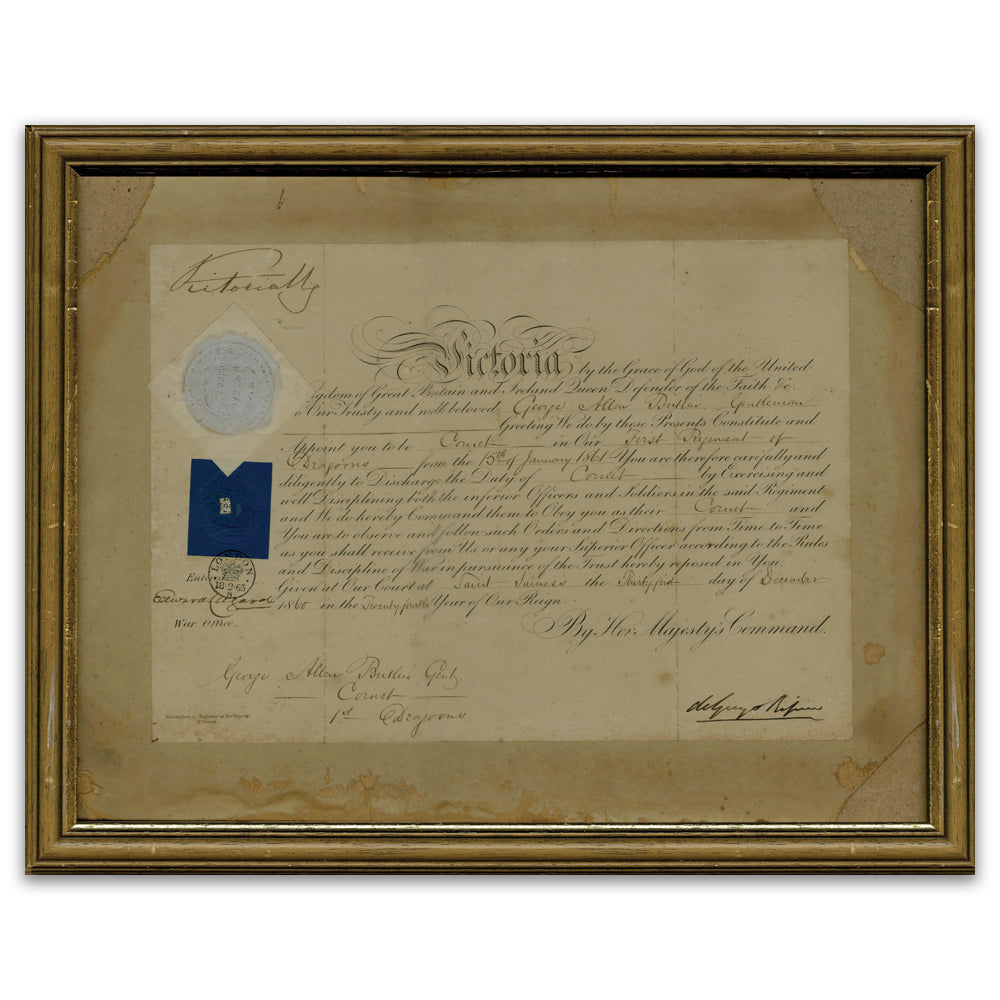 Victoria R
Victoria by the Grace of God of the United
gdom of Great Britain and Ireland Queen Defender of the Faith &c.
o Our Trusty and well beloved George Allen Butler, Gentleman
Greeting We do by these Presents Constitute and
Appoint you to be Cornet in Our First Regiment of
Dragoons from the 15th of January 1861 You are therefore carefully and
diligently to Discharge the Duty of Cornet by Exercising and
well Disciplining both the inferior Officers and Soldiers in the said Regiment
and We do hereby Command them to Obey you as their Cornet and
You are to observe and follow such Orders and Directions from Time to Time
as you shall receive from Us or any your Superior Officer according to the Rules
and Discipline of War in pursuance of the Trust hereby reposed in You.
Given at Our Court at Saint James's the Thirty first day of December
1860 in the Twenty fourth Year of Our Reign.
By Her Majesty's Command.
LONDON
18·2·65
Enter
Edward
War Office.
George Allen Butler Gent.
Cornet
1st Dragoons
de Grey & Ripon